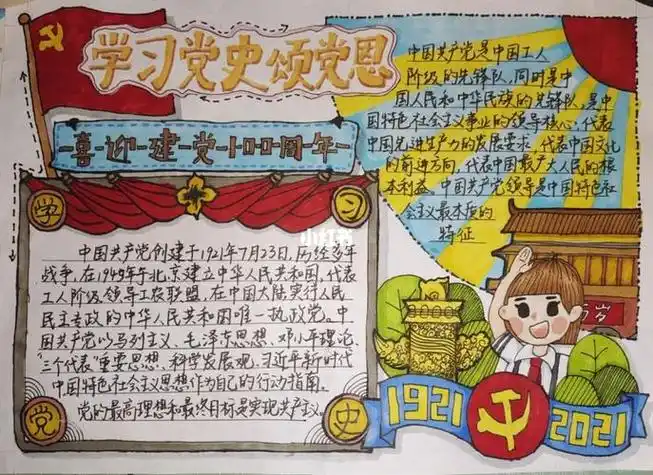 学习党史颂党恩
喜迎建党100周年
学
习
党
史
中国共产党创建于1921年7月23日,历经多年
战争,在1949年于北京建立中华人民共和国,代表
工人阶级领导工农联盟,在中国大陆实行人民
民主专政的中华人民共和国唯一执政党。中
国共产党以马列主义、毛泽东思想、邓小平理论、
"三个代表"重要思想、科学发展观、习近平新时代
中国特色社会主义思想作为自己的行动指南。
党的最高理想和最终目标是实现共产主义。
中国共产党是中国工人
阶级的先锋队,同时是中
国人民和中华民族的先锋队,是中
国特色社会主义事业的领导核心,代表
中国先进生产力的发展要求,代表中国文化
的前进方向,代表中国最广大人民的根
本利益。中国共产党领导是中国特色社
会主义最本质的
特征
小红书
岁
1921
2021